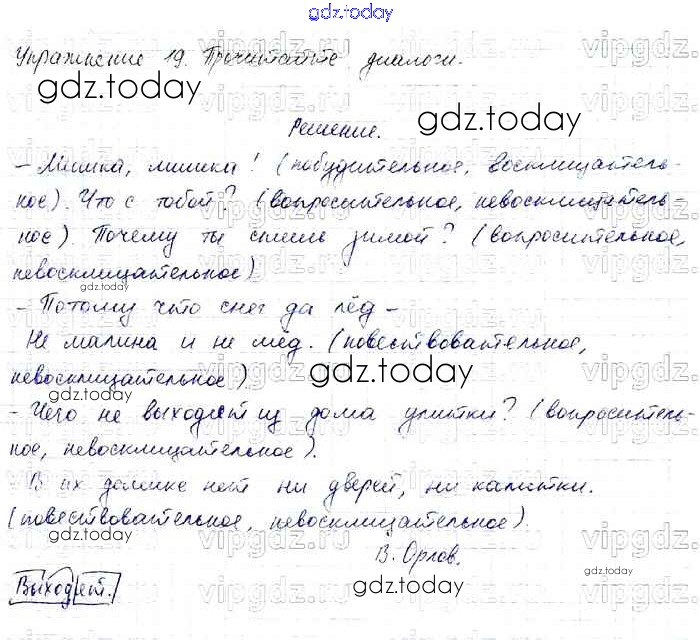 gdz.today
Упражнение 19. Прочитайте диалоги.
gdz.today
gdz.today
Решение.
– Мишка, мишка! (побудительное, восклицатель-
ное). Что с тобой? (вопросительное, невосклицатель-
ное). Почему ты спишь зимой? (вопросительное,
невосклицательное)
– Потому что снег да лёд –
Не малина и не мёд. (повествовательное,
невосклицательное)
gdz.today
– Чего не выходят из дома улитки? (вопроситель-
ное, невосклицательное).
В их домике нет ни дверей, ни калитки.
(повествовательное, невосклицательное).
В. Орлов.
gdz.today
Выходят.